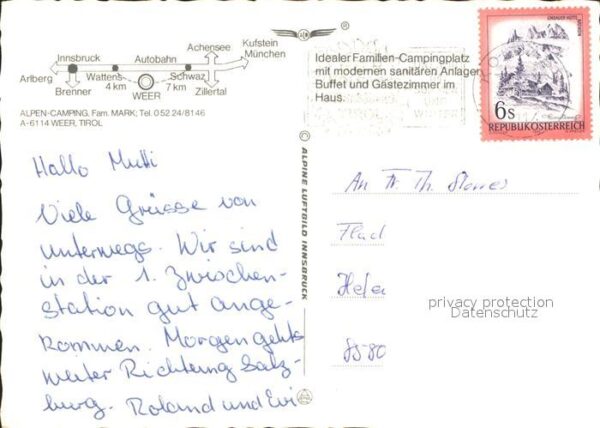 Achensee
Kufstein
München
Innsbruck
Autobahn
Arlberg
Wattens
Schwaz
4 km
7 km
Brenner
WEER
Zillertal
ALPEN-CAMPING, Fam. MARK; Tel. 0 52 24/8146
A-6114 WEER, TIROL
Hallo Mutti
Viele Grüsse von
unterwegs. Wir sind
in der 1. Zwischen-
station gut ange-
kommen. Morgen gehts
weiter Richtung Salz-
burg. Roland und Evi
© ALPINE LUFTBILD INNSBRUCK
®
Idealer Familien-Campingplatz
mit modernen sanitären Anlagen
Buffet und Gästezimmer im
Haus.
WINTER
6s
REPUBLIK ÖSTERREICH
An Fr. Th.
privacy protection
Datenschutz